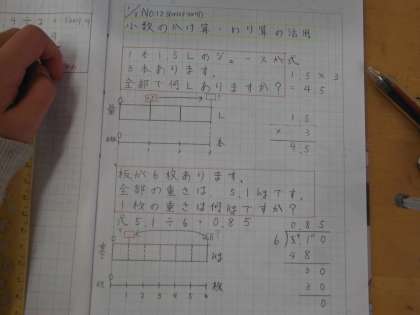 小数のかけ算・わり算の活用
1本1.5Lのジュースが
3本あります。
全部で何Lありますか?
式
1.5×3
=4.5
量
L
本
1.5
× 3
4.5
板が6枚あります。
全部の重さは 5.1kgです。
1枚の重さは何kgですか?
式 5.1÷6=0.85
kg
枚
1 2 3 4 5 6
0.85
6)5.10
48
30
30
0